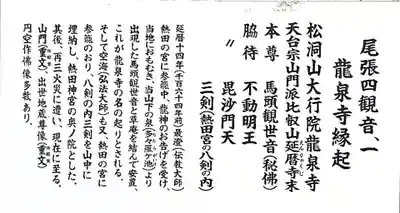 尾張四観音、一
龍泉寺縁起
松洞山大行院龍泉寺
天台宗山門派比叡山延暦寺末
えんりゃくじ
本尊 馬頭観世音(秘佛)
脇待 不動明王
〃 毘沙門天
三剣(熱田宮の八剣の内)
延暦十四年(千百六十四年前)最澄(伝教大師)
熱田の宮に参籠中、龍神のお告げを受け、
当地におもむき、当山下の泉(多々羅ケ池)より
出現した馬頭観世音と草庵を結んで安置、
これが龍泉寺の名の起りとされる。
そして空海(弘法大師)も又、熱田の宮に
参籠のおり、八剣の内三剣を山中に
埋納し、熱田神宮の奥ノ院とした。
其後、再三火災に遭い、現在に至る。
山門(重文)、出世地蔵尊像(重文)、
円空作佛像多数あり。